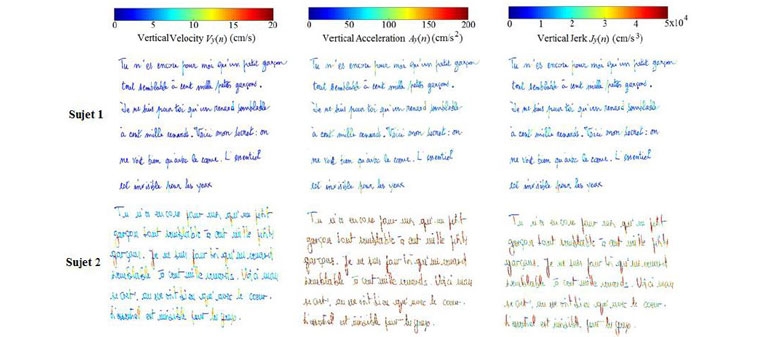 0 5 10 15 20
Vertical Velocity Vy(n) (cm/s)
0 50 100 150 200
Vertical Acceleration Ay(n) (cm/s²)
0 1 2 3 4 5x10⁴
Vertical Jerk Jy(n) (cm/s³)
Sujet 1
Tu n'es encore pour moi qu'un petit garçon
tout semblable à cent mille petits garçons.
Je ne suis pour toi qu'un renard semblable
à cent mille renards. Voici mon secret : on
ne voit bien qu'avec le cœur. L'essentiel
est invisible pour les yeux
Tu n'es encore pour moi qu'un petit garçon
tout semblable à cent mille petits garçons.
Je ne suis pour toi qu'un renard semblable
à cent mille renards. Voici mon secret : on
ne voit bien qu'avec le cœur. L'essentiel
est invisible pour les yeux
Tu n'es encore pour moi qu'un petit garçon
tout semblable à cent mille petits garçons.
Je ne suis pour toi qu'un renard semblable
à cent mille renards. Voici mon secret : on
ne voit bien qu'avec le cœur. L'essentiel
est invisible pour les yeux
Sujet 2
Tu n'es encore pour moi qu'un petit
garçon tout semblable à cent mille petits
garçons. Je ne suis pour toi qu'un renard
semblable à cent mille renards. Voici mon
secret, on ne voit bien qu'avec le cœur.
L'essentiel est invisible pour les yeux.
Tu n'es encore pour moi qu'un petit
garçon tout semblable à cent mille petits
garçons. Je ne suis pour toi qu'un renard
semblable à cent mille renards. Voici mon
secret, on ne voit bien qu'avec le cœur.
L'essentiel est invisible pour les yeux.
Tu n'es encore pour moi qu'un petit
garçon tout semblable à cent mille petits
garçons. Je ne suis pour toi qu'un renard
semblable à cent mille renards. Voici mon
secret, on ne voit bien qu'avec le cœur.
L'essentiel est invisible pour les yeux.